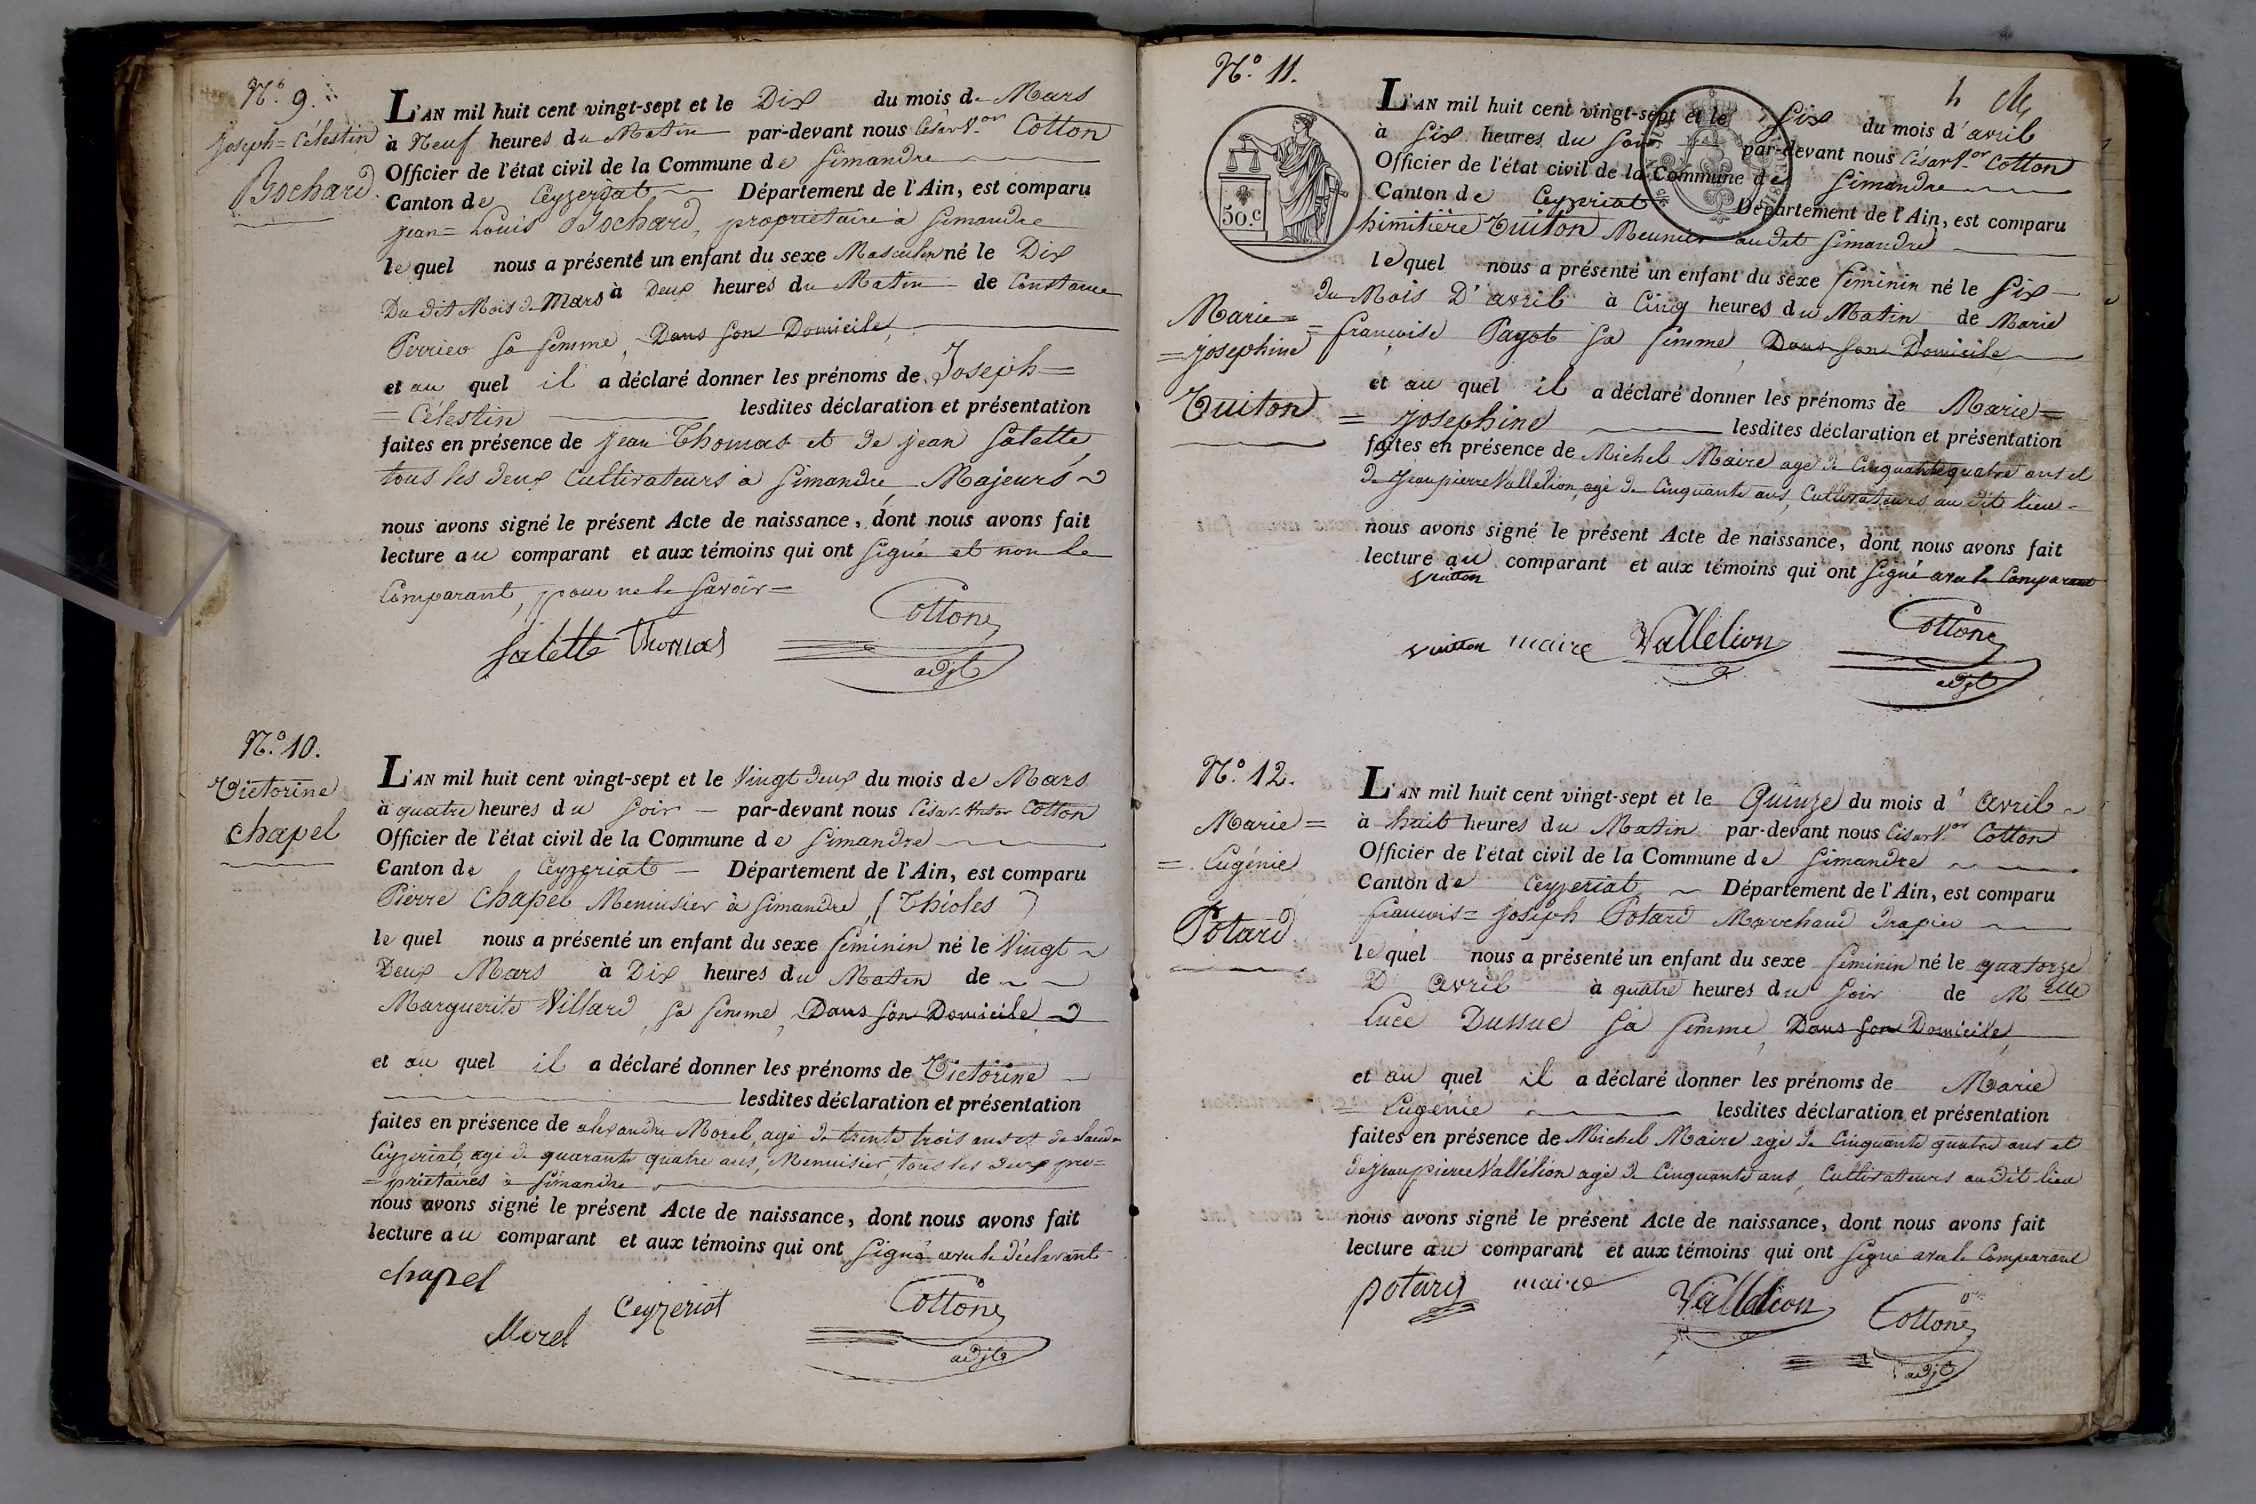 N.º 9.
Joseph = Célestin
Bochard.
L'AN mil huit cent vingt-sept et le Dix du mois de Mars
à Neuf heures du Matin par-devant nous César V.or Cotton
Officier de l'état civil de la Commune de Simandre
Canton de Ceyzeriat Département de l'Ain, est comparu
jean = Louis Bochard, propriétaire à Simandre
le quel nous a présenté un enfant du sexe Masculin né le Dix
Du dit Mois de Mars à Deux heures du Matin de Constance
Perrier sa femme, Dans son Domicile,
et au quel il a déclaré donner les prénoms de Joseph =
= Célestin lesdites déclaration et présentation
faites en présence de jean Thomas et de jean Salette,
tous les deux Cultivateurs à Simandre, Majeurs
nous avons signé le présent Acte de naissance, dont nous avons fait
lecture au comparant et aux témoins qui ont signé et non le
Comparant, pour ne le savoir =
Salette Thomas Cotton
adjt
N.º 10.
Victorine
chapel
L'AN mil huit cent vingt-sept et le Vingt deux du mois de Mars
à quatre heures du soir par-devant nous César-Victor Cotton
Officier de l'état civil de la Commune de Simandre
Canton de Ceyzeriat Département de l'Ain, est comparu
Pierre Chapel Menuisier à Simandre, (Thioles)
le quel nous a présenté un enfant du sexe féminin né le Vingt
Deux Mars à Dix heures du Matin de
Marguerite Villard, sa femme, Dans son Domicile
et au quel il a déclaré donner les prénoms de Victorine
lesdites déclaration et présentation
faites en présence de alexandre Morel, agé de trente trois ans et de
Ceyzeriat, agé de quarante quatre ans, Menuisier, tous les deux pro=
=priétaires à Simandre
nous avons signé le présent Acte de naissance, dont nous avons fait
lecture au comparant et aux témoins qui ont signé avec le déclarant
chapel
Morel Ceyzeriat Cotton
adjt
N.º 11.
50.c
Marie =
= josephine
Tuiton
L'AN mil huit cent vingt-sept et le Six du mois d'avril
à Six heures du soir par-devant nous César V.or Cotton
Officier de l'état civil de la Commune de Simandre
Canton de Ceyzeriat Département de l'Ain, est comparu
Tuiton Meunier audit Simandre
le quel nous a présenté un enfant du sexe féminin né le Six
du Mois D'avril à Cinq heures du Matin de Marie
= françoise Payot sa femme, Dans son Domicile,
et au quel il a déclaré donner les prénoms de Marie =
= josephine lesdites déclaration et présentation
faites en présence de Michel Maire agé de Cinquante quatre ans et
de jean pierre Vallélion, agé de Cinquante ans, Cultivateurs au dit lieu
nous avons signé le présent Acte de naissance, dont nous avons fait
lecture au comparant et aux témoins qui ont signé avec le Comparant
vuitton
vuitton maire Vallélion Cotton
adjt
N.º 12.
Marie =
= Eugénie
Potard
L'AN mil huit cent vingt-sept et le Quinze du mois d'avril
à huit heures du Matin par-devant nous César V.or Cotton
Officier de l'état civil de la Commune de Simandre
Canton de Ceyzeriat Département de l'Ain, est comparu
françois = joseph Potard Marchand drapier
le quel nous a présenté un enfant du sexe féminin né le quatorze
D'avril à quatre heures du soir de M elle
Luce Dussuc sa femme, Dans son Domicile,
et au quel il a déclaré donner les prénoms de Marie
= Eugénie lesdites déclaration et présentation
faites en présence de Michel Maire agé de Cinquante quatre ans et
de jean pierre Vallélion agé de Cinquante ans, Cultivateurs au dit lieu
nous avons signé le présent Acte de naissance, dont nous avons fait
lecture au comparant et aux témoins qui ont signé avec le Comparant
potard maire Vallélion Cotton
adjt